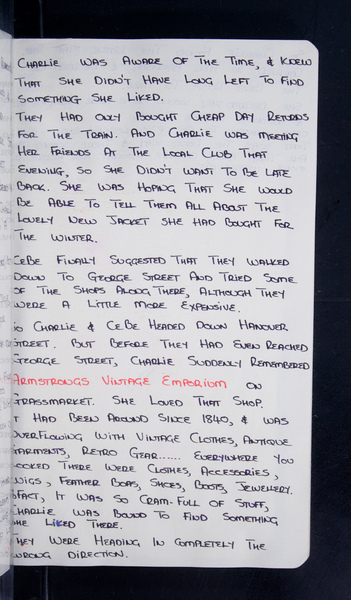 CHARLIE WAS AWARE OF THE TIME, & KNEW
THAT SHE DIDN'T HAVE LONG LEFT TO FIND
SOMETHING SHE LIKED.
THEY HAD ONLY BOUGHT CHEAP DAY RETURNS
FOR THE TRAIN. AND CHARLIE WAS MEETING
HER FRIENDS AT THE LOCAL CLUB THAT
EVENING, SO SHE DIDN'T WANT TO BE LATE
BACK. SHE WAS HOPING THAT SHE WOULD
BE ABLE TO TELL THEM ALL ABOUT THE
LOVELY NEW JACKET SHE HAD BOUGHT FOR
THE WINTER.
CEBE FINALLY SUGGESTED THAT THEY WALKED
DOWN TO GEORGE STREET AND TRIED SOME
OF THE SHOPS ALONG THERE, ALTHOUGH THEY
WERE A LITTLE MORE EXPENSIVE.
SO CHARLIE & CEBE HEADED DOWN HANOVER
STREET. BUT BEFORE THEY HAD EVEN REACHED
GEORGE STREET, CHARLIE SUDDENLY REMEMBERED
ARMSTRONGS VINTAGE EMPORIUM ON
GRASSMARKET. SHE LOVED THAT SHOP.
IT HAD BEEN AROUND SINCE 1840, & WAS
OVERFLOWING WITH VINTAGE CLOTHES, ANTIQUE
GARMENTS, RETRO GEAR...... EVERYWHERE YOU
LOOKED THERE WERE CLOTHES, ACCESSORIES,
WIGS, FEATHER BOAS, SHOES, BOOTS, JEWELLERY.
INFACT, IT WAS SO CRAM-FULL OF STUFF,
CHARLIE WAS BOUND TO FIND SOMETHING
SHE LIKED THERE.
THEY WERE HEADING IN COMPLETELY THE
WRONG DIRECTION.